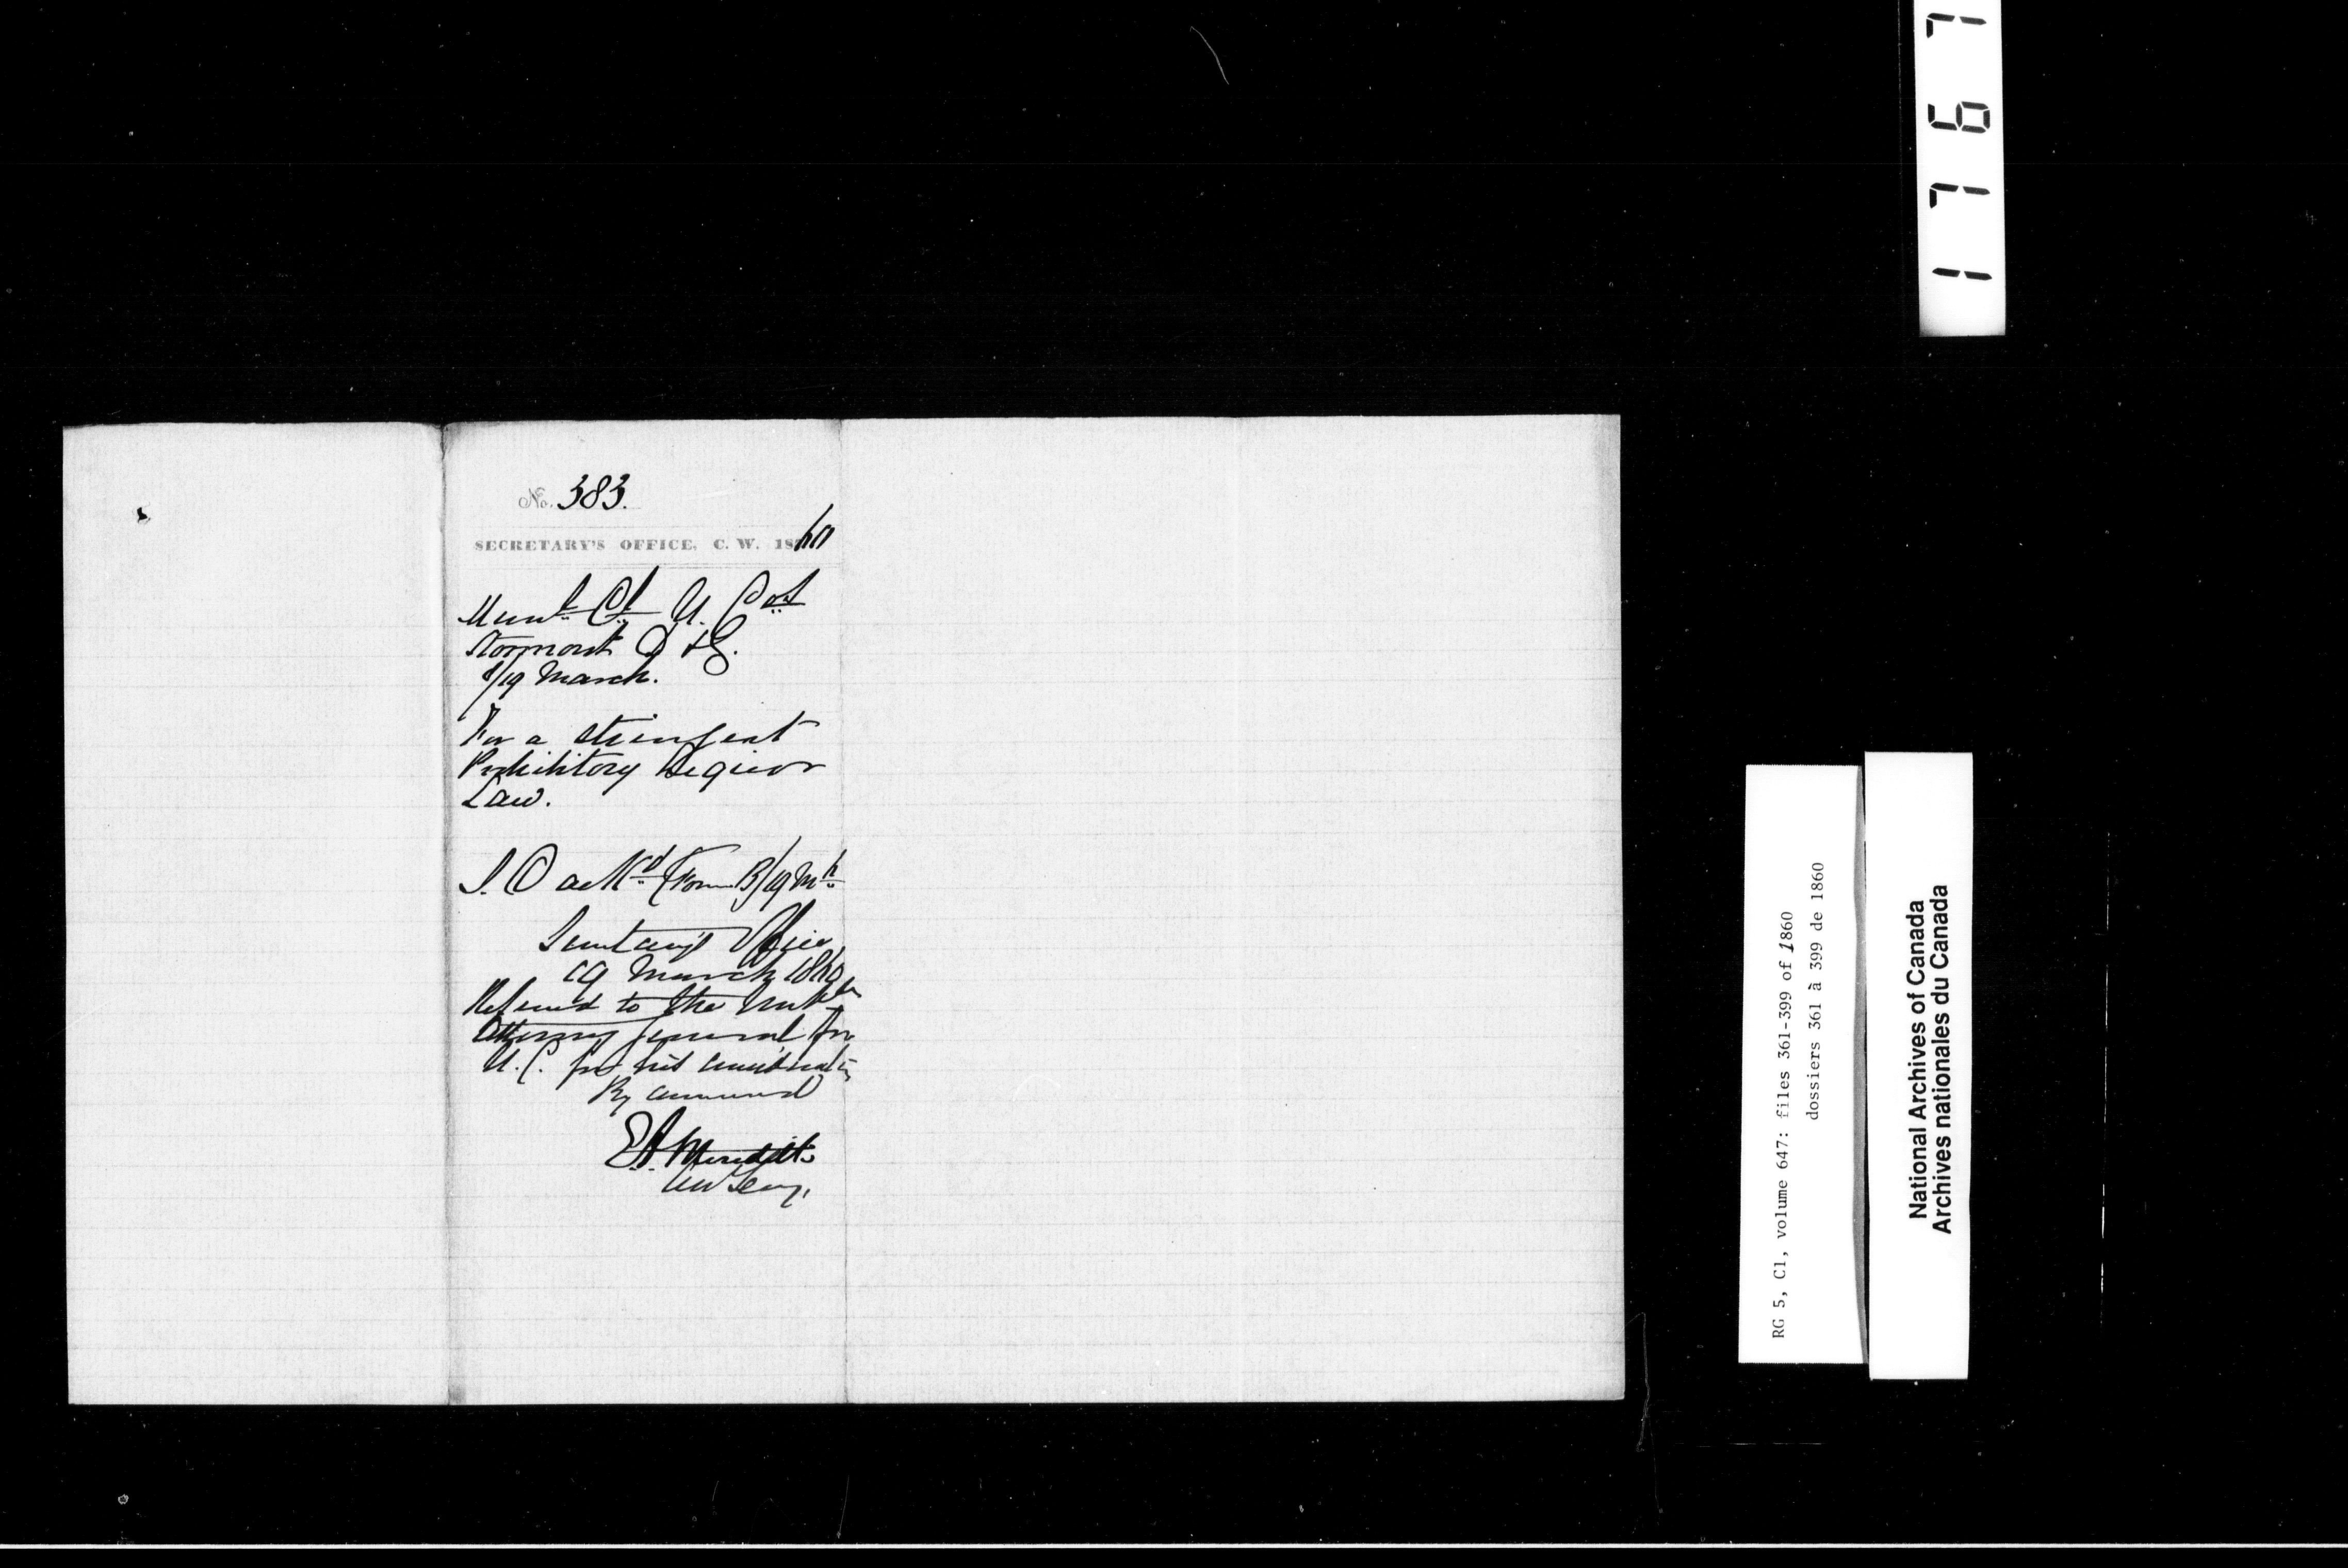 No. 383.
SECRETARY'S OFFICE, C. W. 1860
Munl Cl U. Cos
Stormont D & G.
1/19 March.
For a stringent
Prohibitory Liquor
Law.
Ackd Form B/19 Mh
Secretary's Office
19 March 1860
Referred to the Honble
Attorney General for
U.C. for his consideration
By command
E.A. Meredith
Asst Secy.
1767
RG 5, C1, volume 647: files 361-399 of 1860
dossiers 361 à 399 de 1860
National Archives of Canada
Archives nationales du Canada